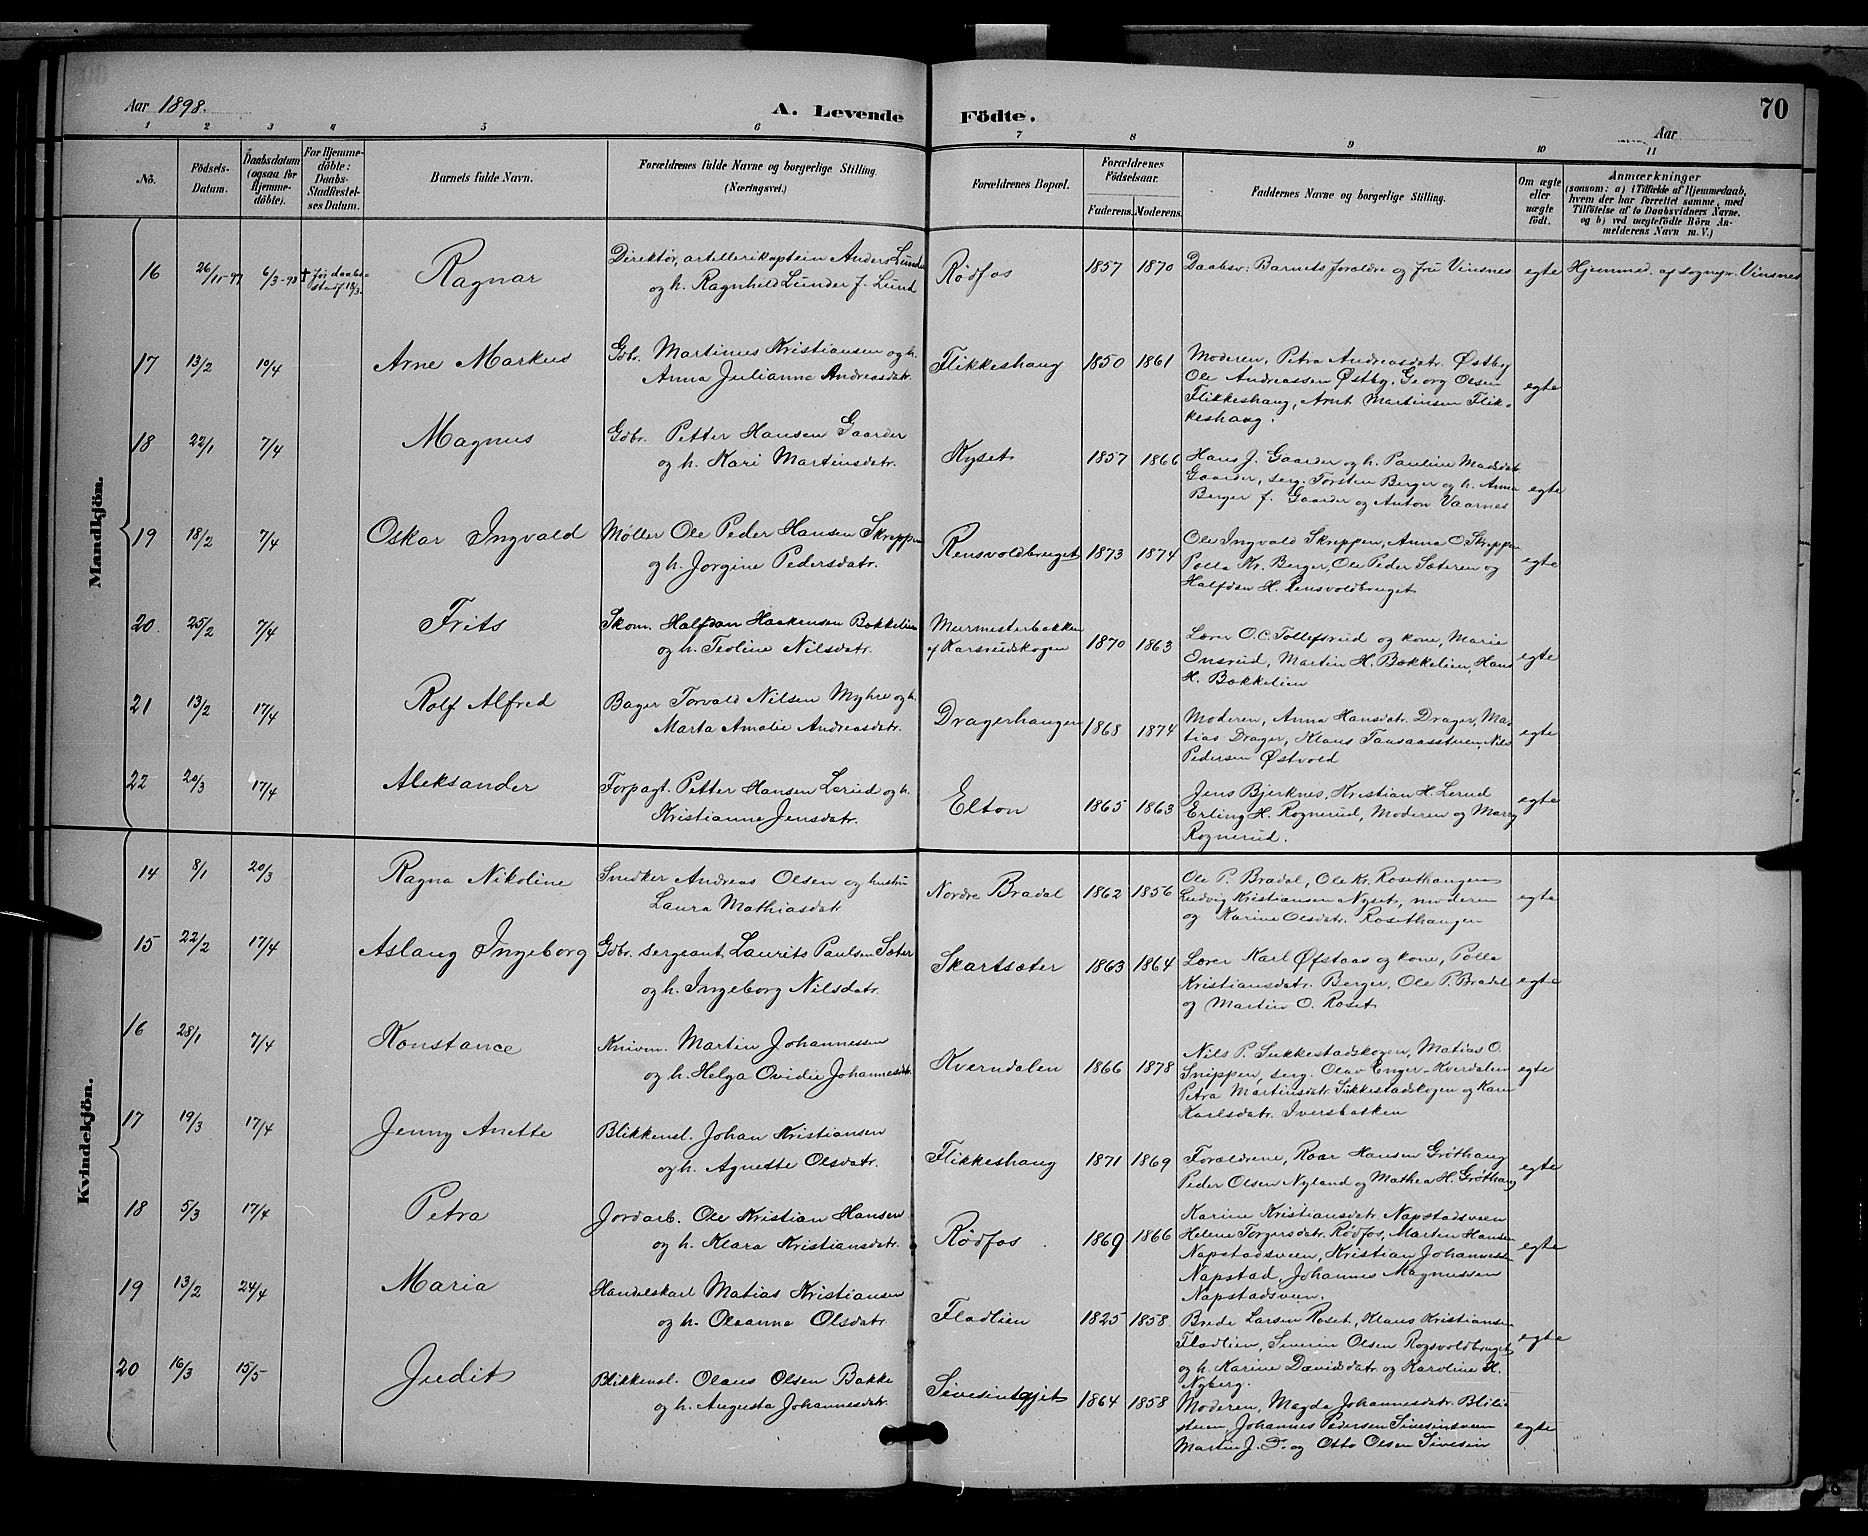 Aar 1898. A. Levende Födte. Aar 70
1 2 3 4 5 6 7 8 9 10 11
No. Födsels-Datum. Daabsdatum (ogsaa for Hjemme-döbte). For Hjemme-döbte: Daabs-Stadfæstel-ses Datum. Barnets fulde Navn. Forældrenes fulde Navne og borgerlige Stilling. (Næringsvei.) Forældrenes Bopæl. Forældrenes Födselsaar. Faderens. Moderens. Faddernes Navne og borgerlige Stilling. Om ægte eller uægte födt. Anmærkninger (saasom: a) i Tilfælde af Hjemmedaab, hvem der har forrettet samme, med Tilföielse af to Daabsvidners Navne, og b) ved uægtefödte Börn An-melderens Navn m. V.)
Mandkjön.
16 26/11-97 6/3-98 † før daabs-stadf 18/3. Ragnar Direktør, artillerikaptein Anders Lunder Rødfos 1857 1870 Daabsv: Barnets forældre og fru Vinsnes egte Hjemmed. af sognepr. Vinsnes
og h. Ragnhild Lunder f. Lund
17 13/2 10/4 Arne Markus Gdbr. Martinus Kristiansen og h. Flikkeshaug 1850 1861 Moderen, Petra Andreasdatr. Østby
Anna Julianne Andreasdatr. Ole Andreassen Østby, Georg Olsen egte
Flikkeshaug, Arnt Martinsen Flik-
keshaug.
18 22/1 7/4 Magnus Gdbr. Petter Hansen Gaarder Kyset 1857 1866 Hans J. Gaarder og h. Pauline Madsdatr.
og h. Kari Martinsdatr. Gaarder, serg. Torsten Berger og h. Anna egte
Berger f. Gaarder og Anton Vaarnes
19 18/2 7/4 Oskar Ingvald Møller Ole Peder Hansen Skreppen Rensvoldbruget 1873 1874 Ole Ingvald Skreppen, Anna O. Skreppen
og h. Jørgine Pedersdatr. Polla Kr. Berger, Ole Peder Sæteren og egte
Halfdan H. Rensvoldbruget
20 25/2 7/4 Frits Skom. Halfdan Haakensen Bækkelien Murmesterbakken 1870 1863 Lærer O.C. Tollefsrud og kone, Marie
og h. Teoline Nilsdatr. af Karsrudskogen Onsrud, Martin H. Bækkelien, Hans egte
H. Bækkelien
21 13/2 17/4 Rolf Alfred Bager Torvald Nilsen Myhre og h. Dragerhaugen 1868 1874 Moderen, Anna Hansdatr. Drager, Ma-
Marta Amalie Andreasdatr. tias Drager, Klaus Taasaasstuen, Nils egte
Pedersen Østvold
22 20/3 17/4 Aleksander Forpagt. Petter Hansen Lerud og h. Elton 1865 1863 Jens Bjerknes, Kristian H. Lerud egte
Kristianne Jensdatr. Erling H. Rognerud, Moderen og Marry
Rognerud.
Kvindekjön.
14 8/1 20/3 Ragna Nikoline Snedker Andreas Olsen og hustru Nordre Bradal 1862 1856 Ole P. Bradal, Ole Kr. Rosethaugen egte
Laura Mathiasdatr Ludvig Kristiansen Nyset, moderen
og Karine Olsdatr. Rosethaugen
15 22/2 17/4 Aslaug Ingeborg Gdbr. sergeant Laurits Paulsen Sæter Skartsæter 1863 1864 Lærer Karl Øfstaas og kone, Polla
og h. Ingeborg Nilsdatr. Kristiansdatr. Berger, Ole P. Bradal egte
og Martin O. Roset
16 28/1 7/4 Konstance Knivm. Martin Johannessen Kverndalen 1866 1878 Nils P. Sukkestadskogen, Matias O.
og h. Helga Ovidie Johannesdtr. Snippen, serg. Olav Enger-Kverdalen egte
Petra Martinsdtr Sukkestadskogen og Karen
Karlsdatr. Iversbakken
17 19/3 17/4 Jenny Anette Blikkensl. Johan Kristiansen Flikkeshaug 1871 1869 Forældrene, Roar Hansen Grøthaug egte
og h. Agnette Olsdatr. Peder Olsen Nyland og Mathea H. Grøthaug
18 5/3 17/4 Petra Jordarb. Ole Kristian Hansen Rødfos 1869 1866 Karine Kristiansdatr. Napstadsveen
og h. Klara Kristiansdatr. Helene Torgersdatr. Rødfos, Martin Hansen egte
Napstadsveen, Kristian Johannessen
Napstad, Johannes Magnussen
Napstadsveen.
19 13/2 24/4 Maria Handelskarl Matias Kristiansen Fladlien 1825 1858 Brede Larsen Roset, Klaus Kristiansen
og h. Oleanna Olsdatr Fladlien, Severin Olsen Rogsvoldbruget egte
og h. Karine Davidsdatr. og Karoline H.
Nyberg.
20 16/3 15/5 Judit Blikkensl. Olaus Olsen Bakke 1864 1858 Moderen, Magda Johannesdatr. Blili-
og h. Augusta Johannesdatr. stuen, Johannes Pedersen Sivesindsveen egte
Martin J. D. og Otto Olsen Sivesin